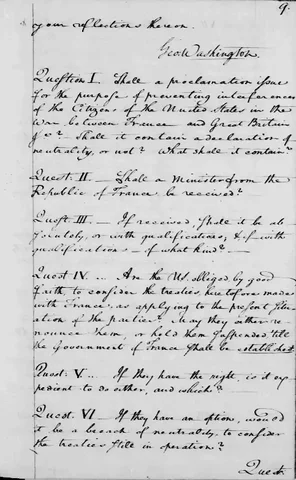 9.
your reflections thereon.
Geo: Washington
Question I. Shall a proclamation issue
for the purpose of preventing interferences
of the Citizens of the United States in the
War between France and Great Britain
&c? Shall it contain a declaration of
neutrality, or not? What shall it contain?
Quest. II — Shall a Minister from the
Republic of France be received?
Quest III — If received, shall it be ab
solutely, or with qualifications; & if with
qualifications — of what kind?
Quest IV .. Are the U.S. obliged by good
faith to consider the treaties heretofore made
with France, as applying to the present situ
ation of the parties? may they either re
nounce them, or hold them suspended till
the Government of France shall be established?
Quest. V .. If they have the right, is it ex
pedient to do either, and which?
Quest. VI — If they have an option, would
it be a breach of neutrality to consider
the treaties still in operation?
Quest.